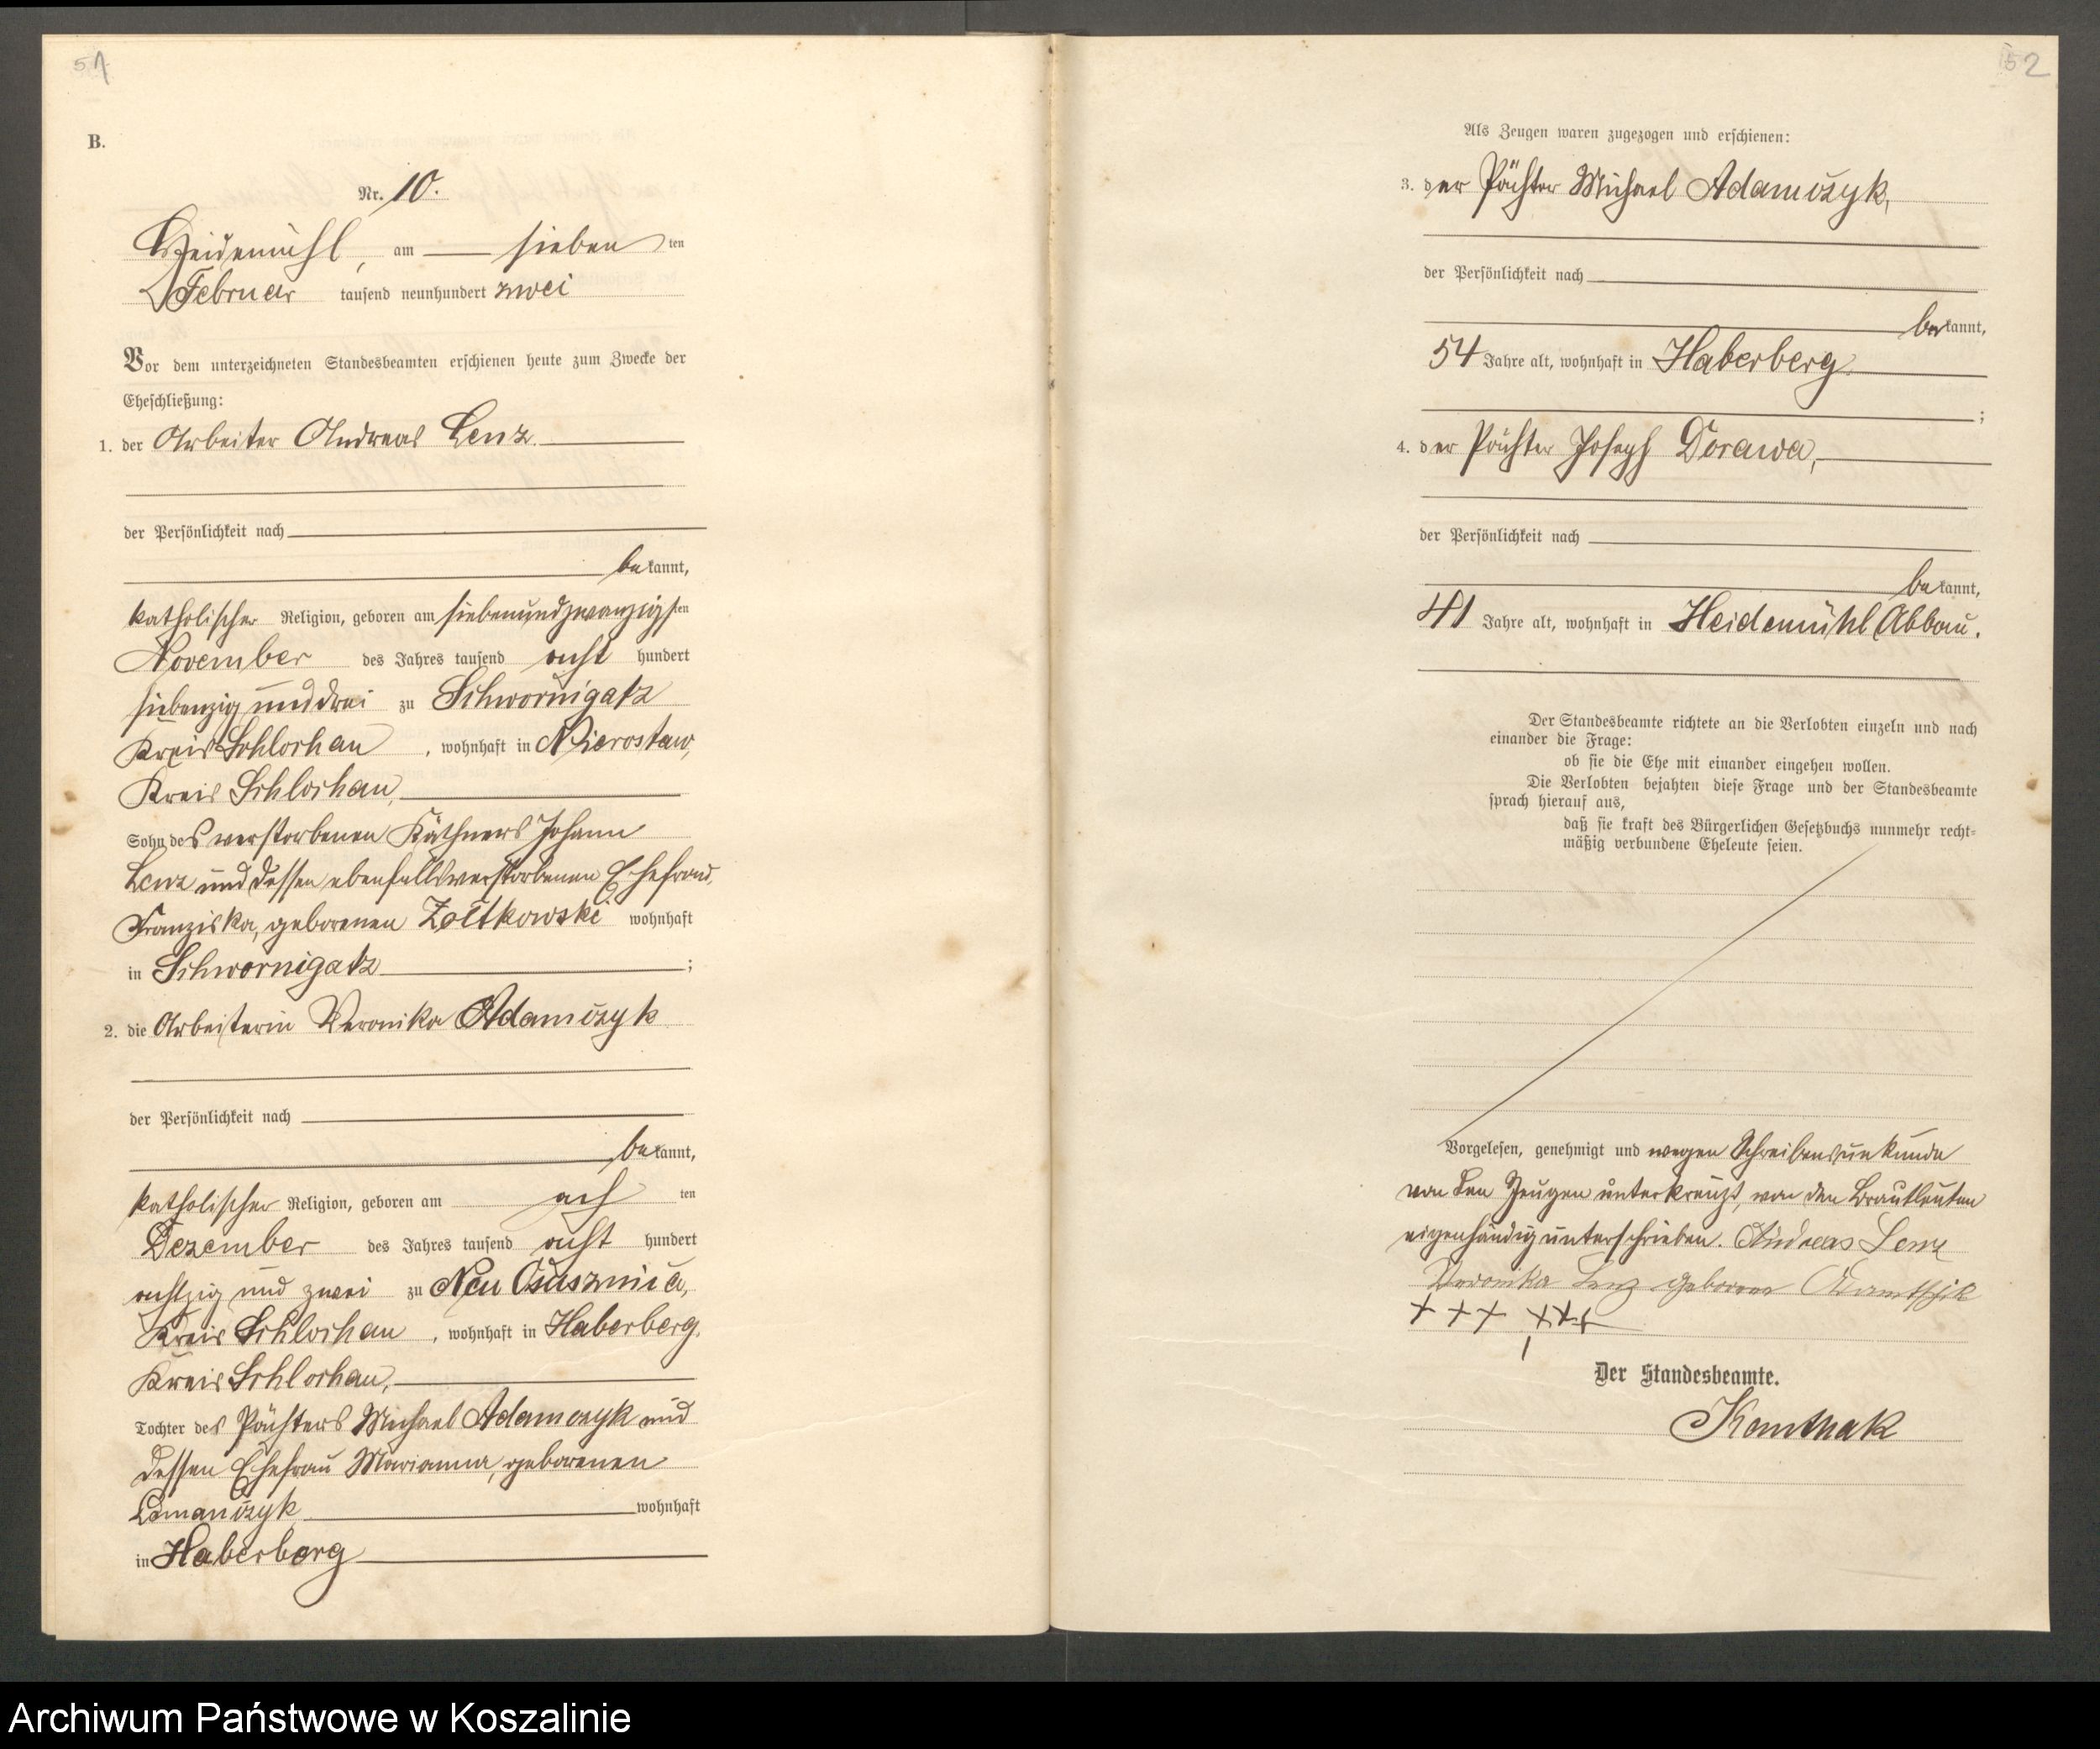 51
B.
Nr. 10.
Heidemühl, am sieben ten
Februar tausend neunhundert zwei
Vor dem unterzeichneten Standesbeamten erschienen heute zum Zwecke der
Eheschließung:
1. der Arbeiter Andreas Lenz.
der Persönlichkeit nach
bekannt,
katholischer Religion, geboren am siebenundzwanzigsten
November des Jahres tausend acht hundert
siebenzig und drei zu Schwornigatz
Kreis Schlochau, wohnhaft in
Kreis Schlochau,
Sohn des verstorbenen Käthners Johann
Lenz und dessen ebenfalls verstorbenen Ehefrau,
Franziska, geborenen wohnhaft
in Schwornigatz;
2. die Arbeiterin Veronika Adamczyk
der Persönlichkeit nach
bekannt,
katholischer Religion, geboren am ach ten
Dezember des Jahres tausend acht hundert
achtzig und zwei zu Neu
Kreis Schlochau, wohnhaft in Haberberg,
Kreis Schlochau,
Tochter des Pächters Michael Adamczyk und
dessen Ehefrau Marianna, geborenen
wohnhaft
in Haberberg
52
Als Zeugen waren zugezogen und erschienen:
3. der Pächter Michael Adamczyk,
der Persönlichkeit nach
bekannt,
54 Jahre alt, wohnhaft in Haberberg
;
4. der Pächter Joseph Dorawa,
der Persönlichkeit nach
bekannt,
41 Jahre alt, wohnhaft in Heidemühl Abbau.
Der Standesbeamte richtete an die Verlobten einzeln und nach
einander die Frage:
ob sie die Ehe mit einander eingehen wollen.
Die Verlobten bejahten diese Frage und der Standesbeamte
sprach hierauf aus,
daß sie kraft des Bürgerlichen Gesetzbuchs nunmehr recht-
mäßig verbundene Eheleute seien.
Vorgelesen, genehmigt und wegen Schreibensunkunde
von den Zeugen unterkreuzt, von den Brautleuten
eigenhändig unterschrieben. Andreas Lenz
Veronika Lenz geboren
+++ +++
Der Standesbeamte.
Archiwum Państwowe w Koszalinie